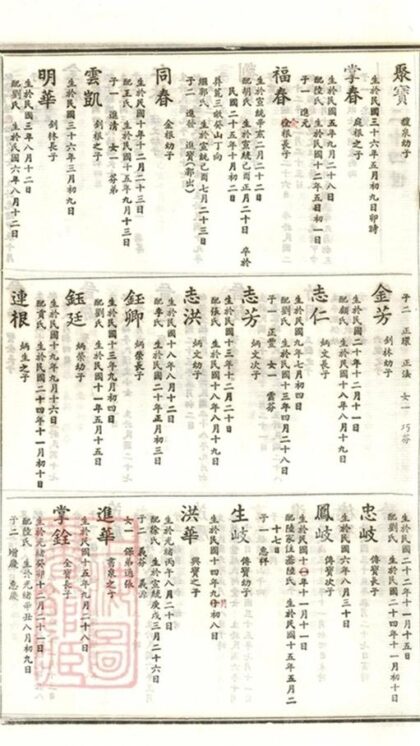 聚寶 馥泉幼子
生於民國三十六年五月初九日卯時
掌春 庭根之子
生於民國五年九月二十八日
配陸氏 生於民國十二年五月初一日
子一 進元
福春 銓根長子
生於宣統辛亥二月二十二日
配胡氏 生於宣統己酉正月二十二日 卒於
民國二十五年十月初二日
繼郭氏 生於宣統己酉七月二十三日
子二 進發 進寶(郭出)
同春 金根幼子
生於民國十年十二月二十三日
配王氏 生於民國十五年九月十三日
子一 進清 女一 芬弟
雲凱 釗根之子
生於民國三十六年三月初九日
明華 釗林長子
生於民國三年八月十二日
配劉氏 生於民國六年八月十二日
子二 正環 正儀 女一 巧芬
金芳 釗林幼子
生於民國二十年十二月十一日
配顧氏 生於民國十八年十月二十日
志仁 炳文長子
生於民國九年七月初四日
配劉氏 生於民國十三年四月二十八日
子一 正豐 女一 雷芬
志芳 炳文次子
生於民國十三年十二月二十日
配張氏 生於民國十八年八月十九日
志洪 炳文幼子
生於民國十八年八月十二日
配李氏 生於民國二十年正月初三日
鈺卿 炳榮長子
生於民國十三年九月初四日
配劉氏 生於民國十一年五月十五日
鈺廷 炳榮幼子
生於民國十九年九月十六日
連根 炳生之子
配黃氏 生於民國二十四年十一月初十日
忠岐 傳賢長子
生於民國二十一年二月十四日
配劉氏 生於民國二十四年十一月初十日
鳳岐 傳賢次子
生於民國六年八月三十日
生岐 傳賢幼子
生於民國十一年十一月十一日
配陸家住盛陸氏 生於民國十五年五月二
十七日
子一 惠祥
洪華 興賢之子
生於民國十四年九月初八日
生於光緒丙午八月二十日
配徐氏 生於宣統庚戌三月二十六日
子二 義芬 義源
女一 保弟適張
進華 書泉之子
生於民國十五年九月二十八日
掌銓 金寶長子
生於光緒癸卯十二月二十一日
配陸氏 生於光緒辛丑八月初九日
子二 增慶 惠慶